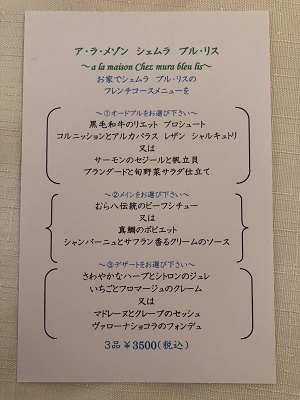 ア・ラ・メゾン シェムラ ブル・リス
～a la maison Chez mura bleu lis～
お家でシェムラ ブル・リスの
フレンチコースメニューを
～①オードブルをお選び下さい～
黒毛和牛のリエット プロシュート
コルニッションとアルカパラス レザン シャルキュトリ
又は
サーモンのセジールと帆立貝
ブランダードと旬野菜サラダ仕立て
～②メインをお選び下さい～
むら八伝統のビーフシチュー
又は
真鯛のポピエット
シャンパーニュとサフラン香るクリームのソース
～③デザートをお選び下さい～
さわやかなハーブとシトロンのジュレ
いちごとフロマージュのクレーム
又は
マドレーヌとクレープのセッシュ
ヴァローナショコラのフォンデュ
3品￥3500(税込)